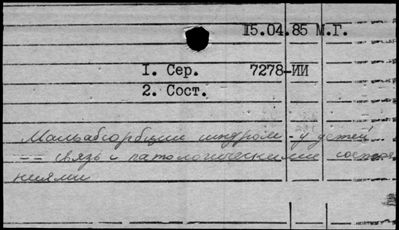 15.04.85 М.Г.
1. Сер. 7278-ИИ
2. Сост.
Мальабсорбции синдром - у детей
-- связь с патологическими состоя-
ниями